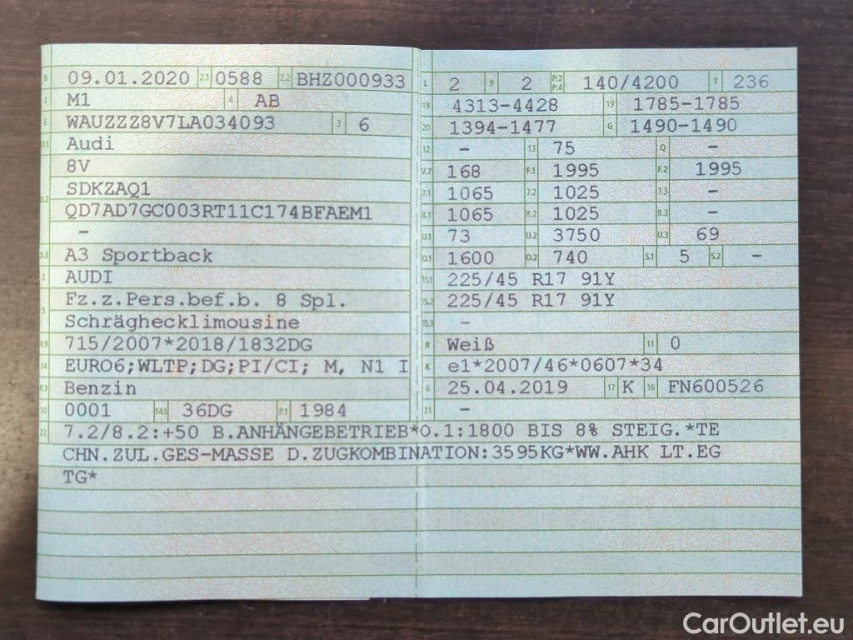 B 09.01.2020 2.1 0588 2.2 BHZ000933
J M1 4 AB
E WAUZZZ8V7LA034093 3 6
D.1 Audi
8V
D.2 SDKZAQ1
QD7AD7GC003RT11C174BFAEM1
–
D.3 A3 Sportback
2 AUDI
5 Fz.z.Pers.bef.b. 8 Spl.
Schräghecklimousine
V.9 715/2007*2018/1832DG
14 EURO6;WLTP;DG;PI/CI; M, N1 I
P.3 Benzin
10 0001 14.1 36DG P.1 1984
L 2 9 2 P.2 P.4 140/4200 T 236
18 4313-4428 19 1785-1785
20 1394-1477 G 1490-1490
12 – 13 75 Q –
V.7 168 F.1 1995 F.2 1995
7.1 1065 7.2 1025 7.3 –
8.1 1065 8.2 1025 8.3 –
U.1 73 U.2 3750 U.3 69
O.1 1600 O.2 740 S.1 5 S.2 –
15.1 225/45 R17 91Y
15.2 225/45 R17 91Y
15.3 –
R Weiß 11 0
K e1*2007/46*0607*34
6 25.04.2019 17 K 16 FN600526
21 –
22 7.2/8.2:+50 B.ANHÄNGEBETRIEB*O.1:1800 BIS 8% STEIG.*TE
CHN.ZUL.GES-MASSE D.ZUGKOMBINATION:3595KG*WW.AHK LT.EG
TG*
CarOutlet.eu